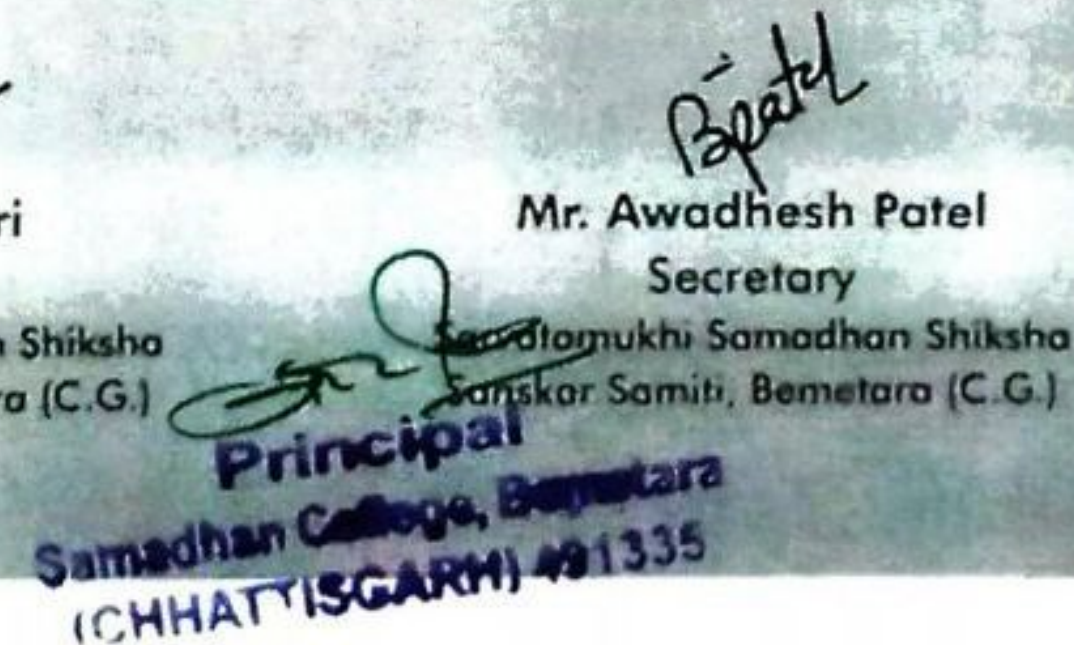 ri
Shiksha
a (C.G.)
Mr. Awadhesh Patel
Secretary
Samadhan Shiksha
Sanskar Samiti, Bemetara (C.G.)
Principal
Samadhan College, Bemetara
(CHHATTISGARH) 491335